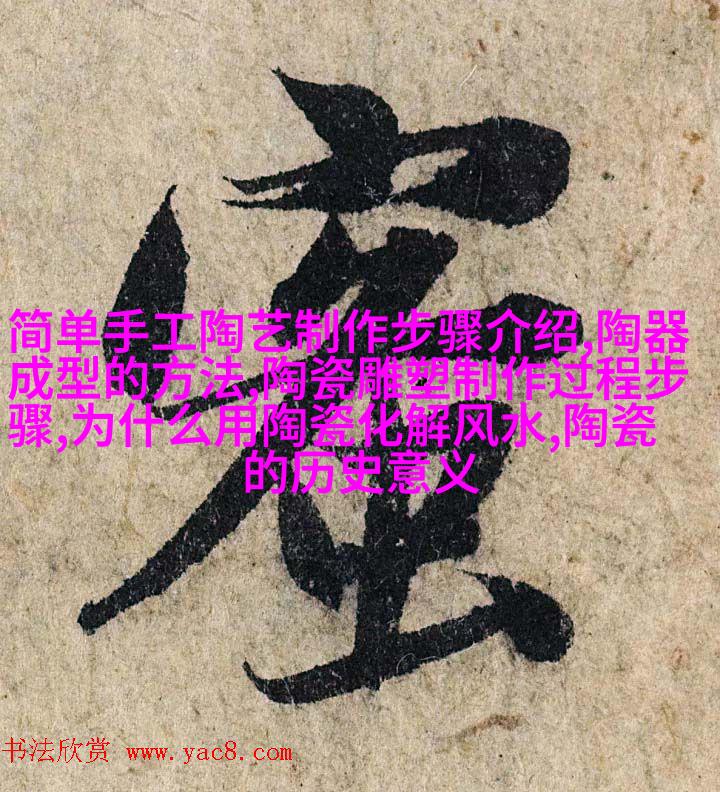 简单手工陶艺制作步骤介绍,陶器
成型的方法,陶瓷雕塑制作过程步
骤,为什么用陶瓷化解风水,陶瓷
的历史意义
书法欣赏 www.yac8.com